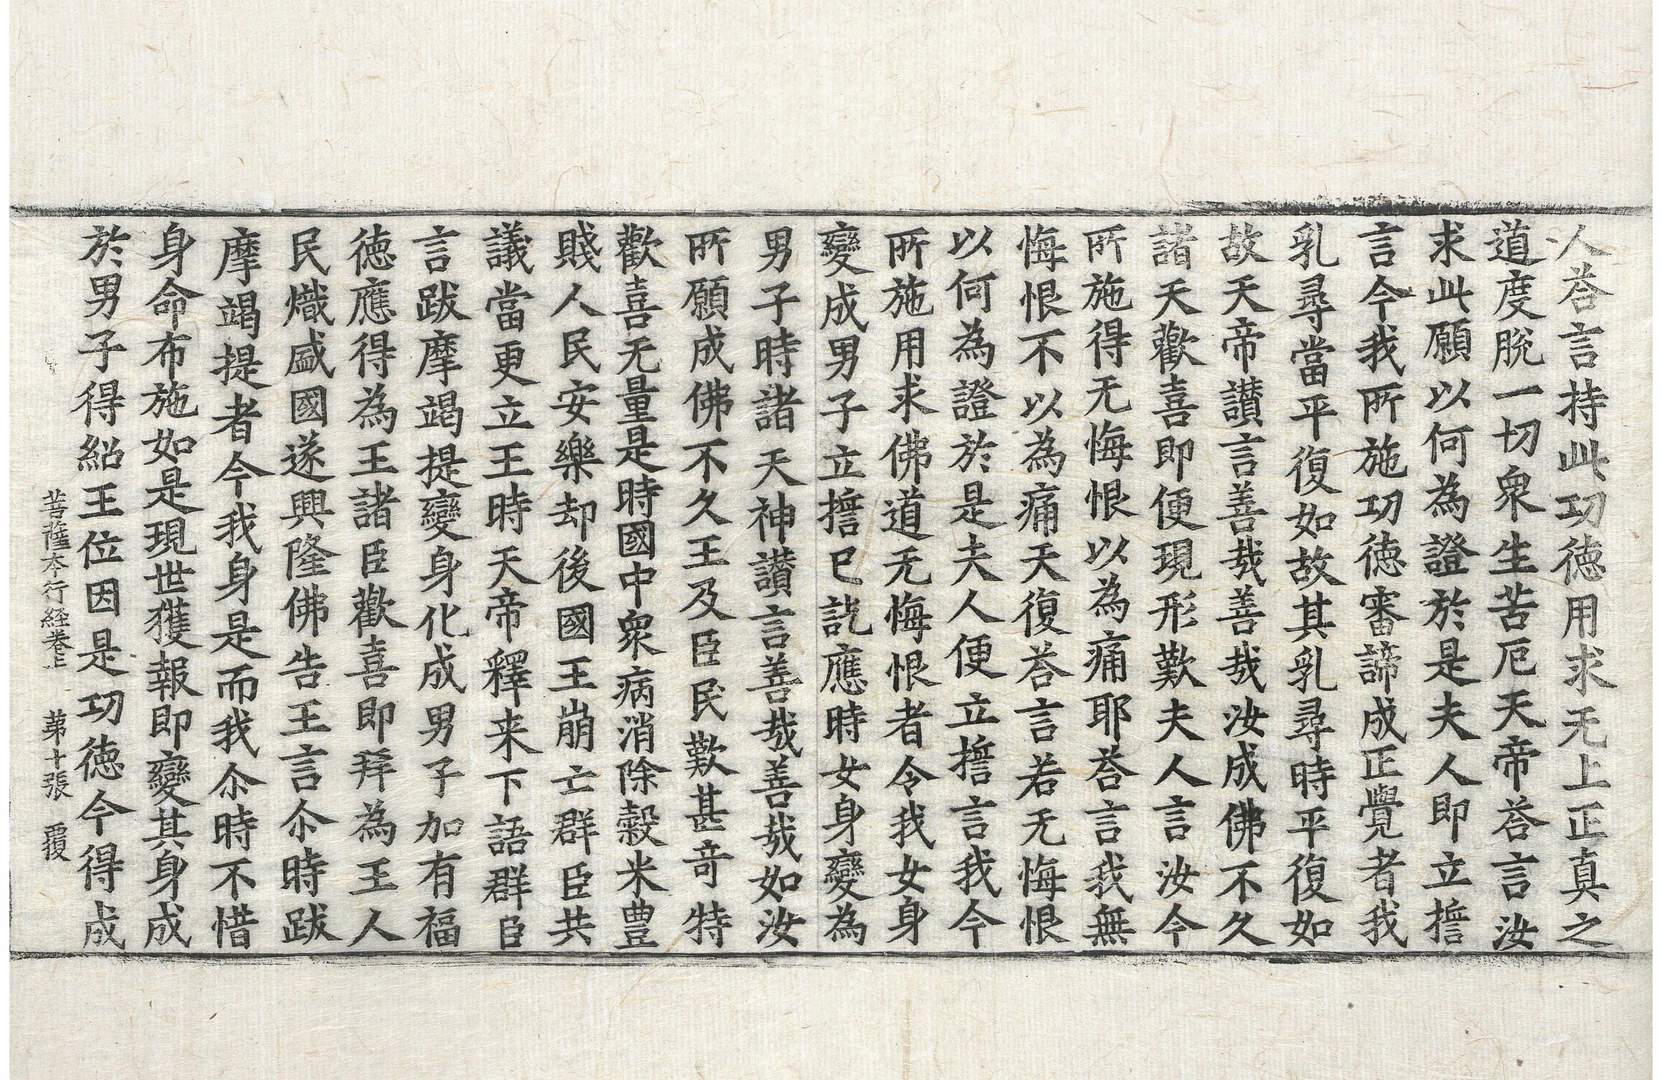 人荅言持此功徳用求无上正真之
道度脫一切衆生苦厄天帝荅言汝
求此願以何為證於是夫人即立擔
言今我所施功徳審諦成正覺者我
乳尋當平復如故其乳尋時平復如
故天帝讃言善㢤善㢤汝成佛不久
諸天歡喜即便現形歎夫人言汝今
所施得无悔恨以為痛耶荅言我無
悔恨不以為痛天復荅言若无悔恨
以何為證於是夫人便立擔言我今
所施用求佛道无悔恨者令我女身
變成男子立擔已訖應時女身變為
男子時諸天神讃言善㢤善㢤如汝
所願成佛不久王及臣民歎甚竒特
歡喜无量是時國中衆病消除糓米豊
賤人民安樂却後國王崩亡群臣共
議當更立王時天帝釋来下語群臣
言跋摩竭提變身化成男子加有福
徳應得為王諸臣歡喜即拜為王人
民熾盛國遂興隆佛告王言尒時跋
摩竭提者今我身是而我尒時不惜
身命布施如是現世獲報即變其身成
於男子得紹王位因是功徳今得成
菩薩本行経卷上 苐十張 覆